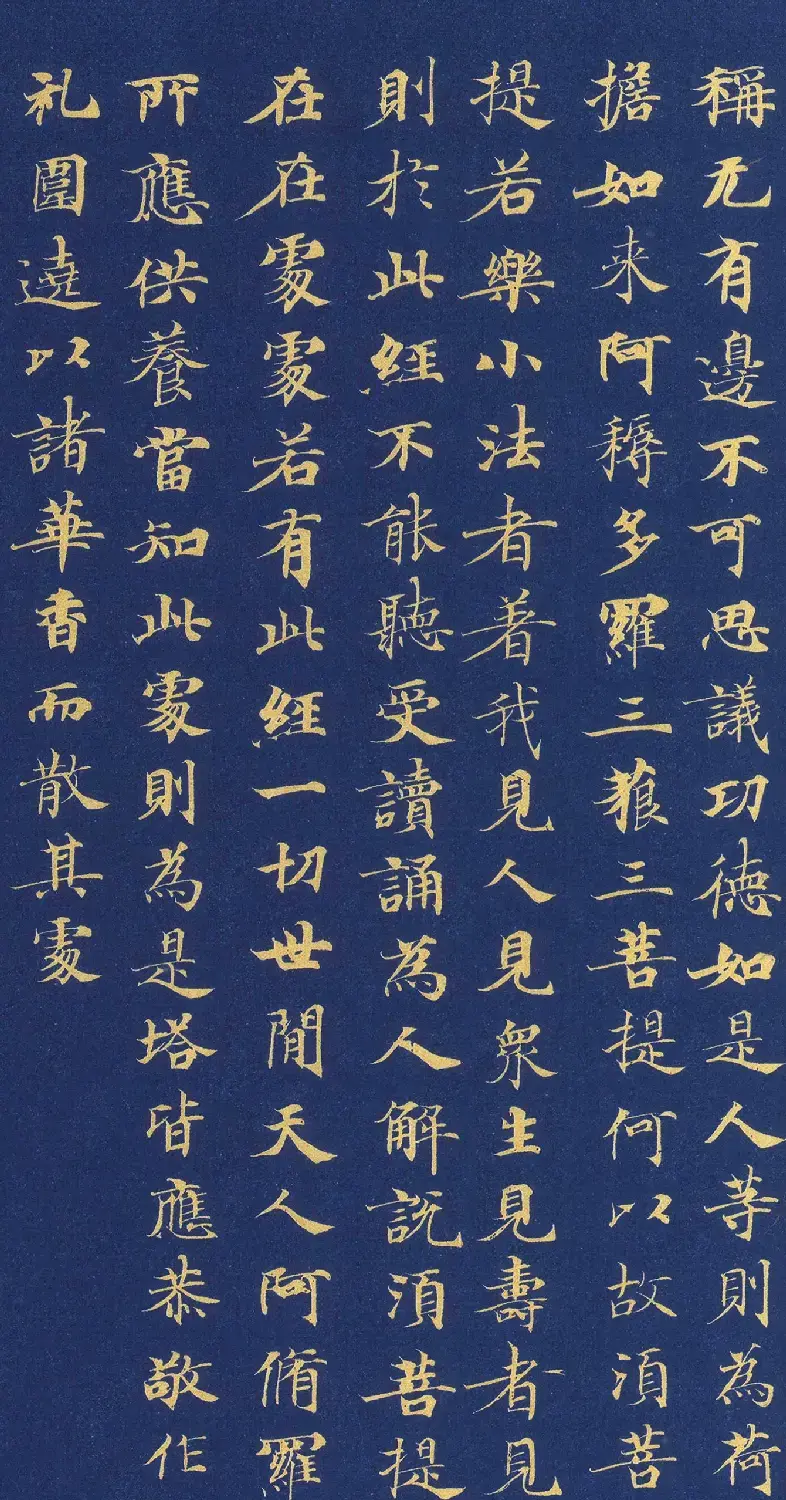 稱无有邊不可思議功德如是人等則為荷
擔如来阿耨多羅三藐三菩提何以故湏菩
提若樂小法者著我見人見衆生見壽者見
則於此經不能聽受讀誦為人解説湏菩提
在在處處若有此經一切世間天人阿脩羅
所應供養當知此處則為是塔皆應恭敬作
礼圍遶以諸華香而散其處